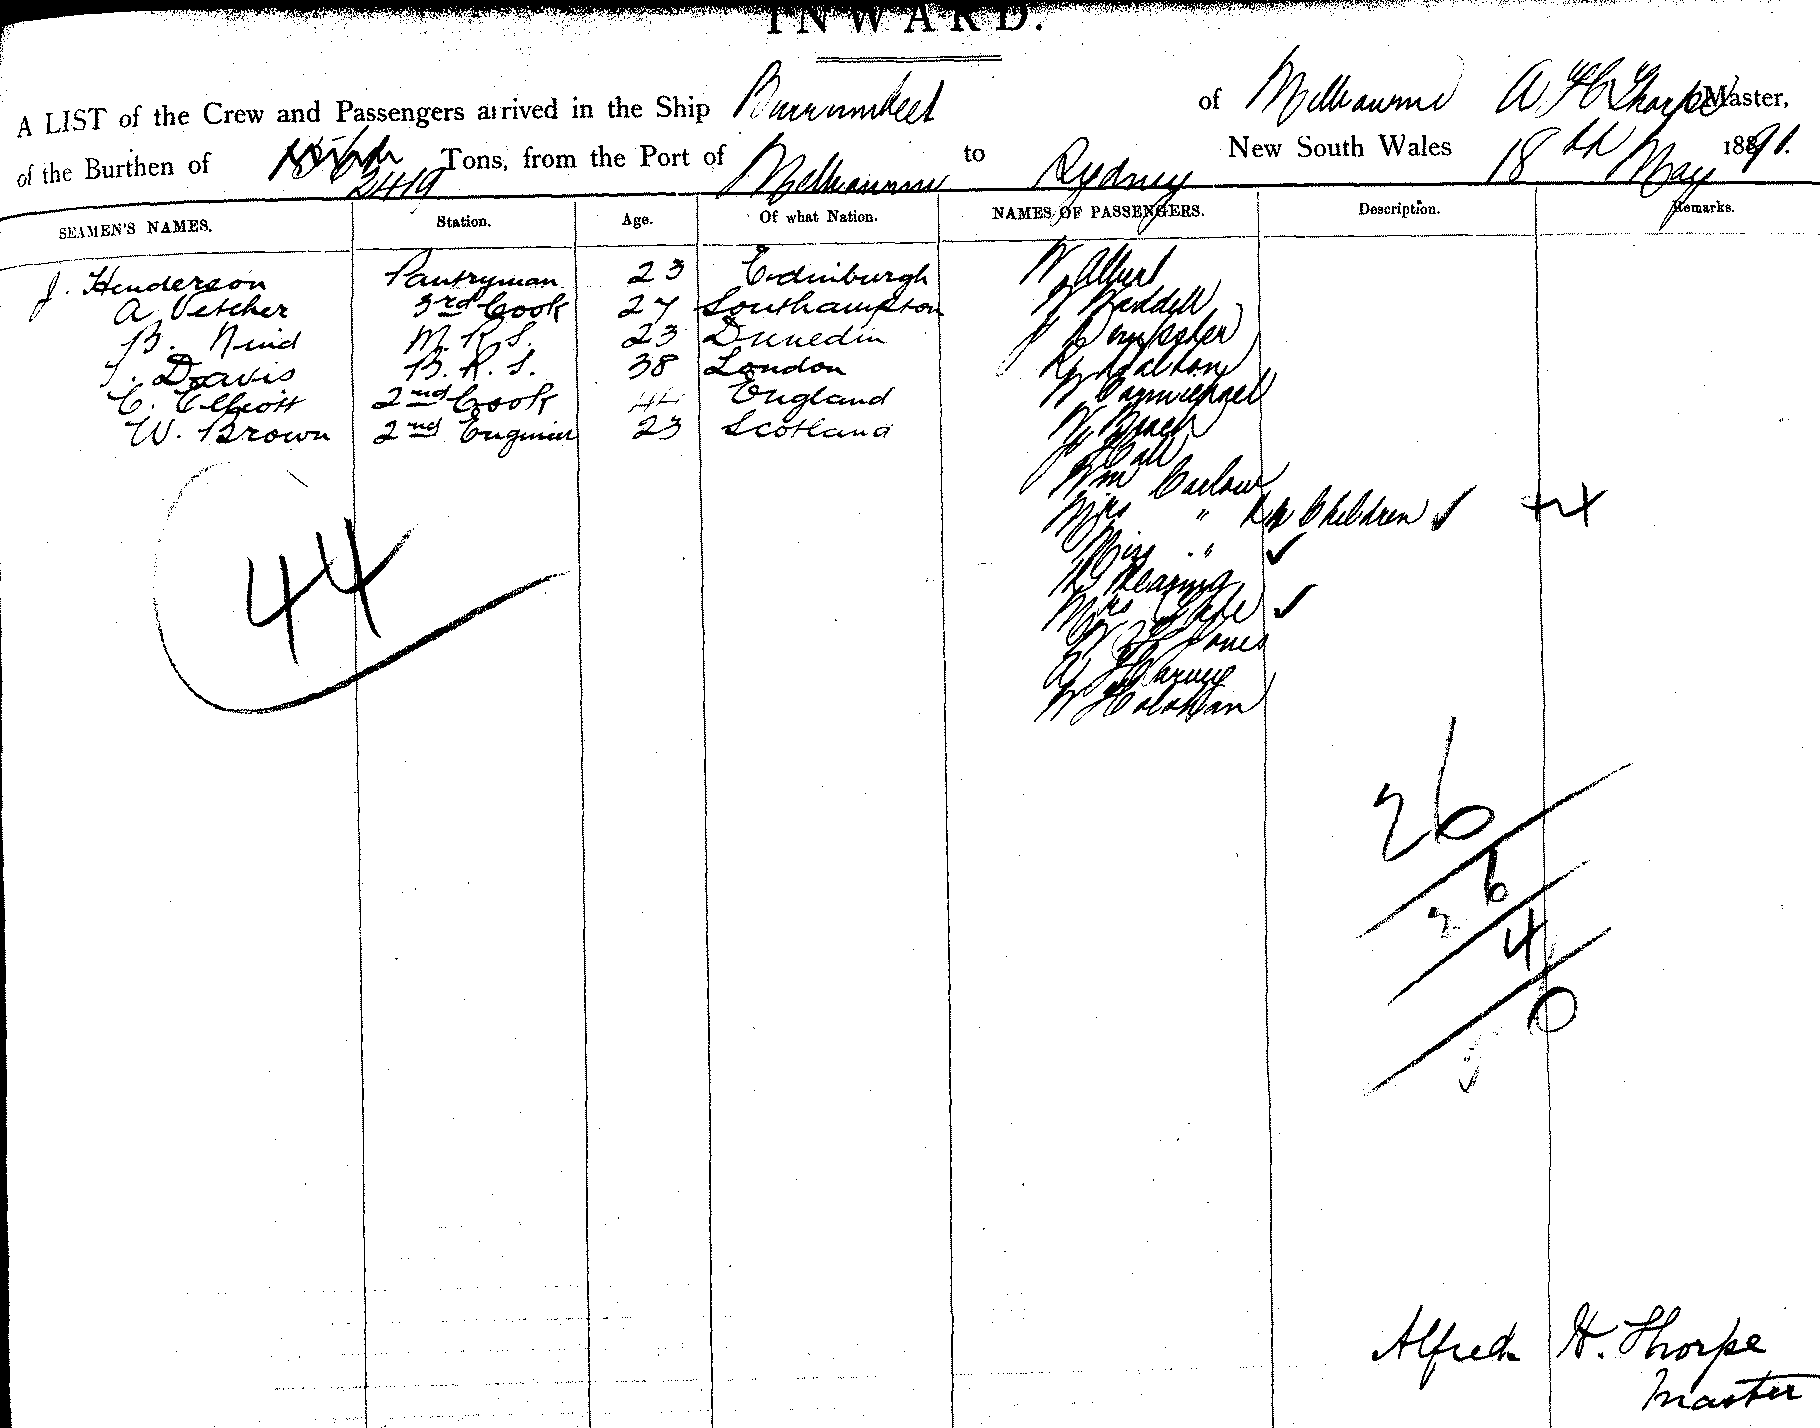 INWARD.
A LIST of the Crew and Passengers arrived in the Ship Burrumbeet of Melbourne A. H. Thorpe Master,
of the Burthen of 2419 Tons, from the Port of Melbourne to Sydney New South Wales 18th May 1891.
SEAMEN'S NAMES. Station. Age. Of what Nation. NAMES OF PASSENGERS. Description. Remarks.
J. Henderson Pantryman 23 Edinburgh W Albert
A Vetcher 3rd Cook 27 Southampton W Waddell
B. Nind M. R. S. 23 Dunedin J Dempster
Davis B. R. S. 38 London Walton
C. Elliott 2nd Cook 44 England W Carmichael
W. Brown 2nd Engineer 23 Scotland W
J Hall
Wm Carlow
Mrs " Children ✓
Miss " ✓
Mrs ✓
W Jones
A Harvey
W Holohan
44
26
6
2
4
0
5
Alfred H. Thorpe
Master